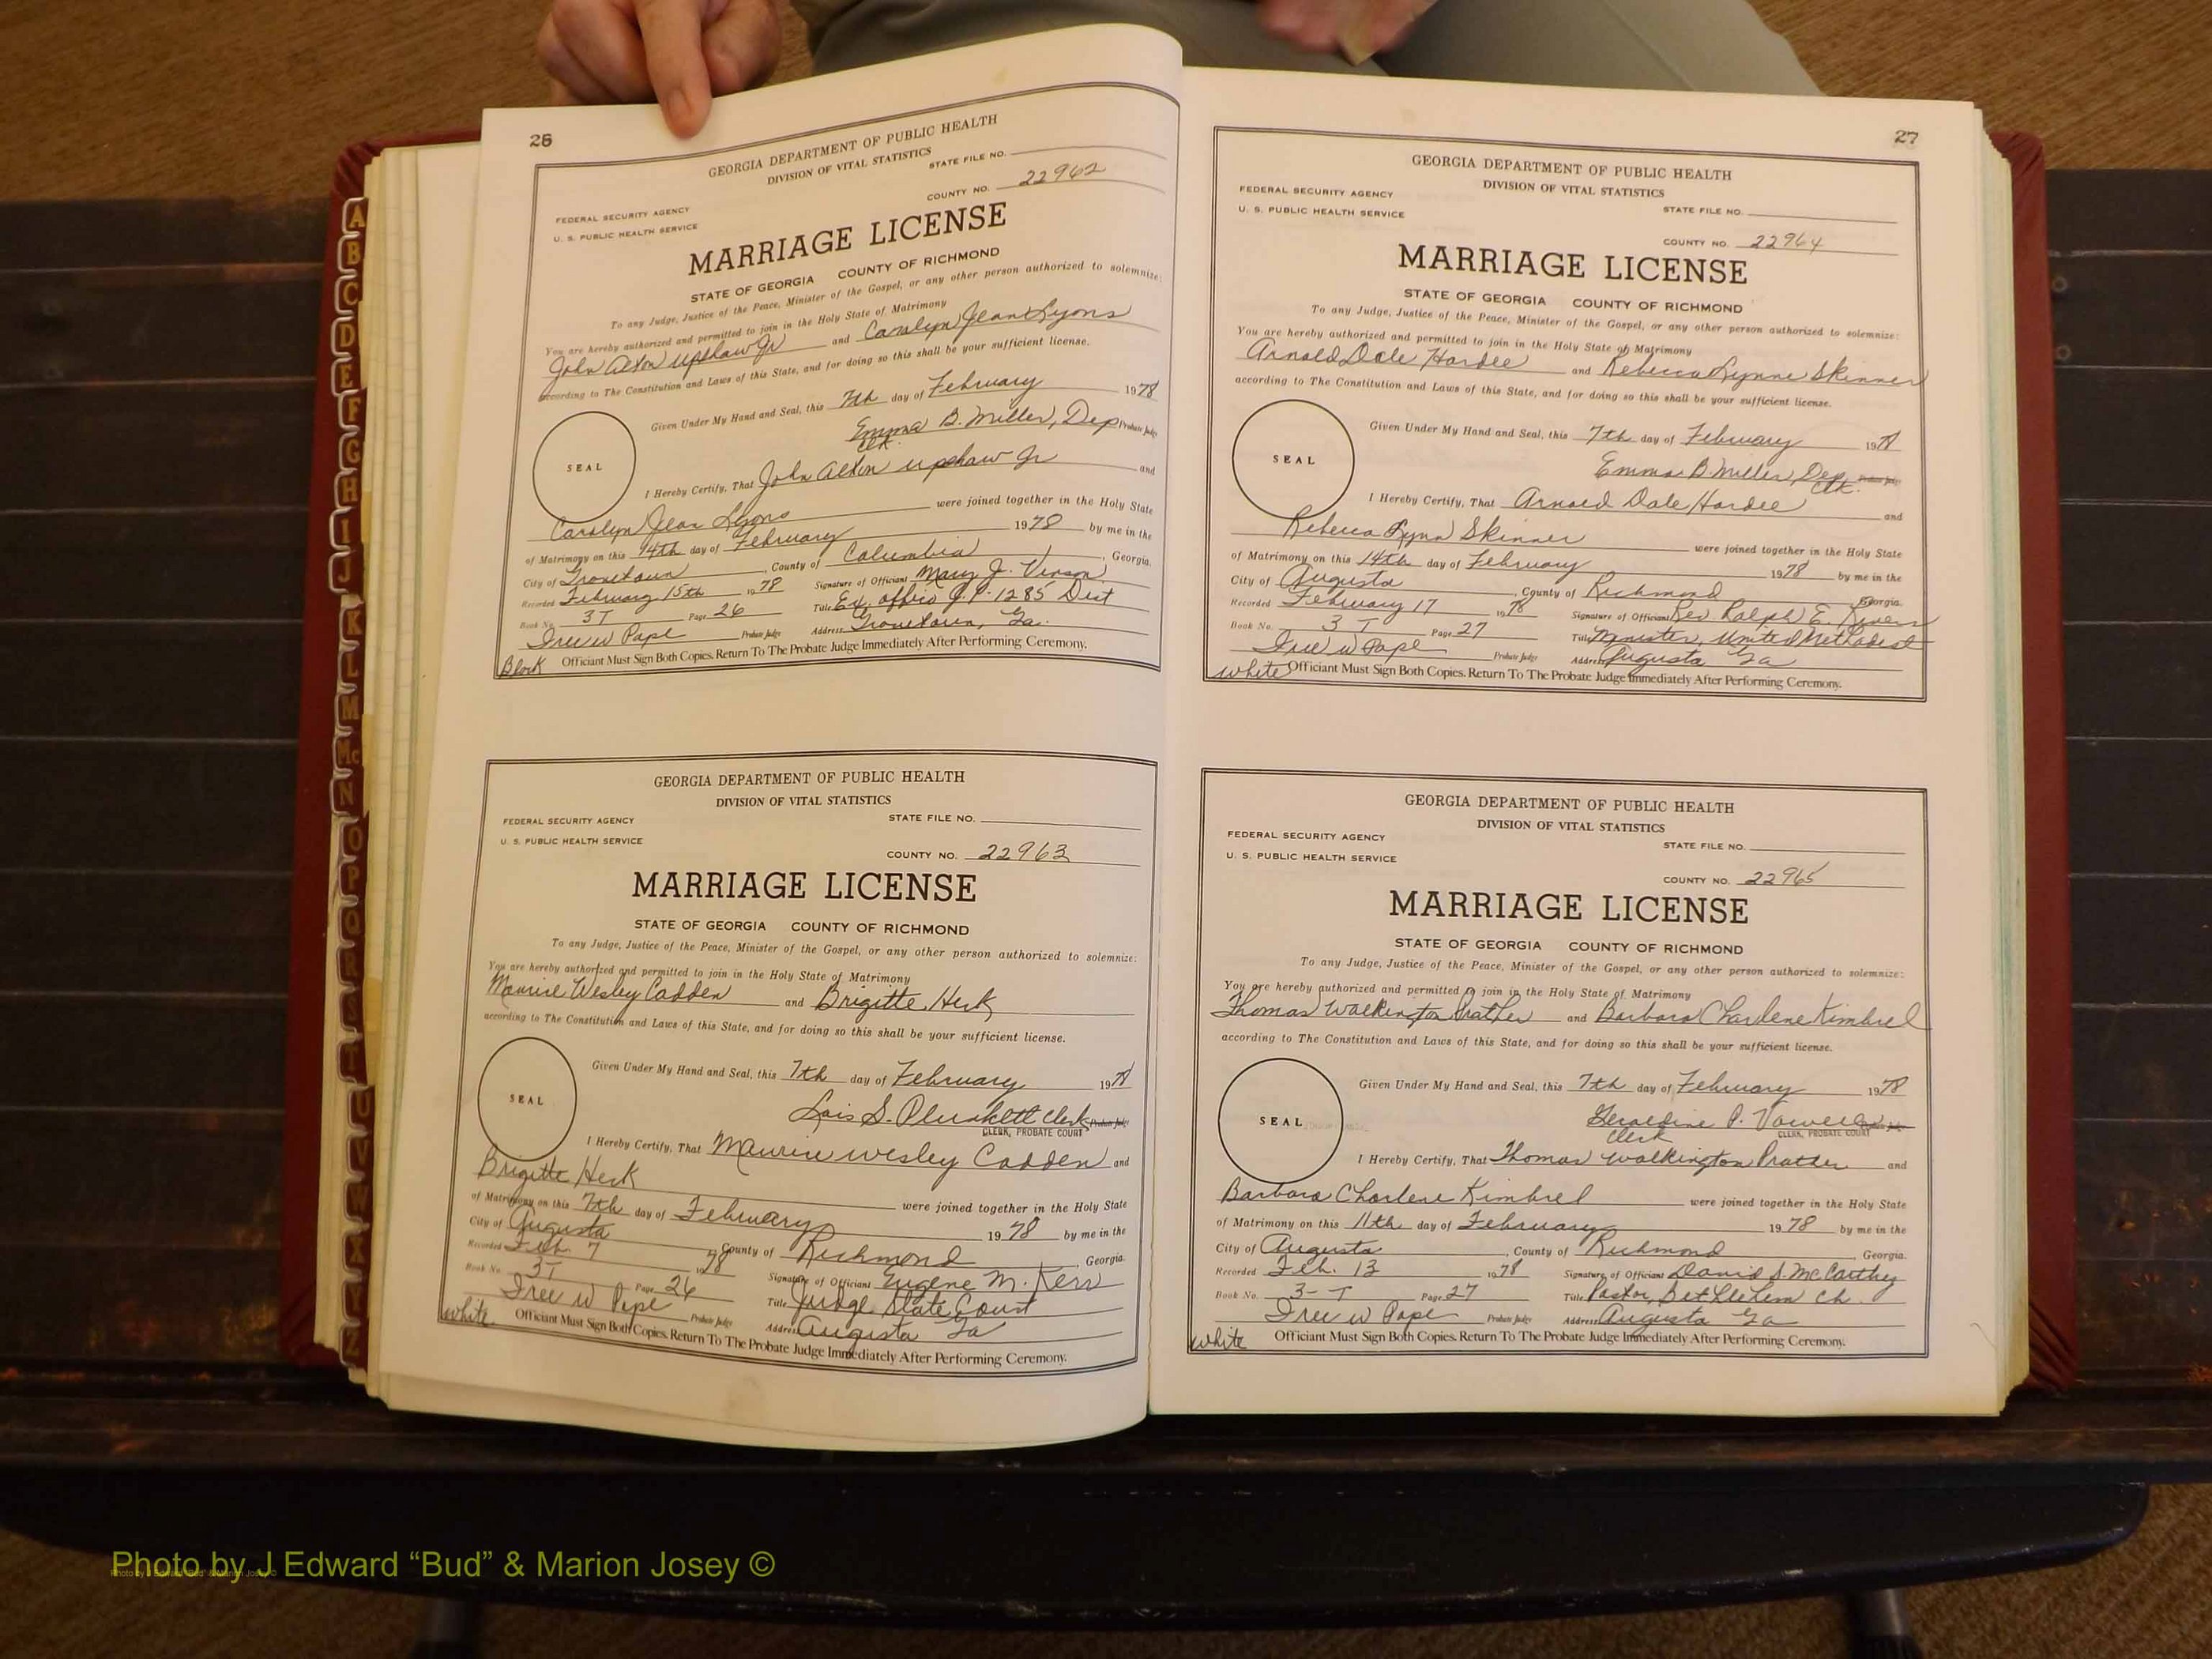 26
GEORGIA DEPARTMENT OF PUBLIC HEALTH
DIVISION OF VITAL STATISTICS
STATE FILE NO.
COUNTY NO. 22962
FEDERAL SECURITY AGENCY
U. S. PUBLIC HEALTH SERVICE
MARRIAGE LICENSE
STATE OF GEORGIA COUNTY OF RICHMOND
To any Judge, Justice of the Peace, Minister of the Gospel, or any other person authorized to solemnize:
You are hereby authorized and permitted to join in the Holy State of Matrimony
John Alton Upshaw Jr and Carolyn Jean Lyons
according to The Constitution and Laws of this State, and for doing so this shall be your sufficient license.
Given Under My Hand and Seal, this 7th day of February 1978
Emma B. Miller, Dep Probate Judge
Clk.
SEAL
I Hereby Certify, That John Alton Upshaw Jr and
Carolyn Jean Lyons were joined together in the Holy State
of Matrimony on this 14th day of February 1978 by me in the
City of Grovetown, County of Columbia, Georgia.
Recorded February 15th 1978 Signature of Officiant Mary J. Vinson
Book No. 3T Page 26 Title Ex. officio J.P. 1285 Dist
Iree W Pope Probate Judge Address Grovetown, Ga.
Black Officiant Must Sign Both Copies. Return To The Probate Judge Immediately After Performing Ceremony.
GEORGIA DEPARTMENT OF PUBLIC HEALTH
DIVISION OF VITAL STATISTICS
STATE FILE NO.
FEDERAL SECURITY AGENCY
U. S. PUBLIC HEALTH SERVICE
COUNTY NO. 22963
MARRIAGE LICENSE
STATE OF GEORGIA COUNTY OF RICHMOND
To any Judge, Justice of the Peace, Minister of the Gospel, or any other person authorized to solemnize:
You are hereby authorized and permitted to join in the Holy State of Matrimony
Maurice Wesley Cadden and Brigitte Herk
according to The Constitution and Laws of this State, and for doing so this shall be your sufficient license.
Given Under My Hand and Seal, this 7th day of February 1978
Lois S. Plunkett Clerk Probate Judge
CLERK, PROBATE COURT
SEAL
I Hereby Certify, That Maurice Wesley Cadden and
Brigitte Herk were joined together in the Holy State
of Matrimony on this 7th day of February 1978 by me in the
City of Augusta County of Richmond, Georgia.
Recorded Feb. 7 1978 Signature of Officiant Eugene M. Kerr
Book No. 3T Page 26 Title Judge State Court
Iree W Pope Probate Judge Address Augusta Ga
white Officiant Must Sign Both Copies. Return To The Probate Judge Immediately After Performing Ceremony.
27
GEORGIA DEPARTMENT OF PUBLIC HEALTH
DIVISION OF VITAL STATISTICS
FEDERAL SECURITY AGENCY
U. S. PUBLIC HEALTH SERVICE
STATE FILE NO.
COUNTY NO. 22964
MARRIAGE LICENSE
STATE OF GEORGIA COUNTY OF RICHMOND
To any Judge, Justice of the Peace, Minister of the Gospel, or any other person authorized to solemnize:
You are hereby authorized and permitted to join in the Holy State of Matrimony
Arnold Dale Hardee and Rebecca Lynne Skinner
according to The Constitution and Laws of this State, and for doing so this shall be your sufficient license.
Given Under My Hand and Seal, this 7th day of February 1978
Emma B. Miller, Dep. Probate Judge
Clk.
SEAL
I Hereby Certify, That Arnold Dale Hardee and
Rebecca Lynn Skinner were joined together in the Holy State
of Matrimony on this 14th day of February 1978 by me in the
City of Augusta, County of Richmond Georgia.
Recorded February 17 1978 Signature of Officiant Rev. Ralph E. Rivers
Book No. 3 T Page 27 Title Minister, United Methodist
Iree W Pope Probate Judge Address Augusta Ga
white Officiant Must Sign Both Copies. Return To The Probate Judge Immediately After Performing Ceremony.
GEORGIA DEPARTMENT OF PUBLIC HEALTH
DIVISION OF VITAL STATISTICS
FEDERAL SECURITY AGENCY
U. S. PUBLIC HEALTH SERVICE
STATE FILE NO.
COUNTY NO. 22965
MARRIAGE LICENSE
STATE OF GEORGIA COUNTY OF RICHMOND
To any Judge, Justice of the Peace, Minister of the Gospel, or any other person authorized to solemnize:
You are hereby authorized and permitted to join in the Holy State of Matrimony
Thomas Walkington Prather and Barbara Charlene Kimbrel
according to The Constitution and Laws of this State, and for doing so this shall be your sufficient license.
Given Under My Hand and Seal, this 7th day of February 1978
Geraldine P. Vowell
Clerk CLERK, PROBATE COURT
SEAL
I Hereby Certify, That Thomas Walkington Prather and
Barbara Charlene Kimbrel were joined together in the Holy State
of Matrimony on this 11th day of February 1978 by me in the
City of Augusta, County of Richmond, Georgia.
Recorded Feb. 13 1978 Signature of Officiant David S. McCarthy
Book No. 3-T Page 27 Title Pastor, Bethlehem Ch.
Iree W Pope Probate Judge Address Augusta Ga
white Officiant Must Sign Both Copies. Return To The Probate Judge Immediately After Performing Ceremony.
A
B
C
D
E
F
G
H
I
J
K
L
M
Mc
N
O
P
Q
R
S
T
U
V
W
X
Y
Z
Photo by J Edward “Bud” & Marion Josey ©
Photo by J Edward “Bud” & Marion Josey ©